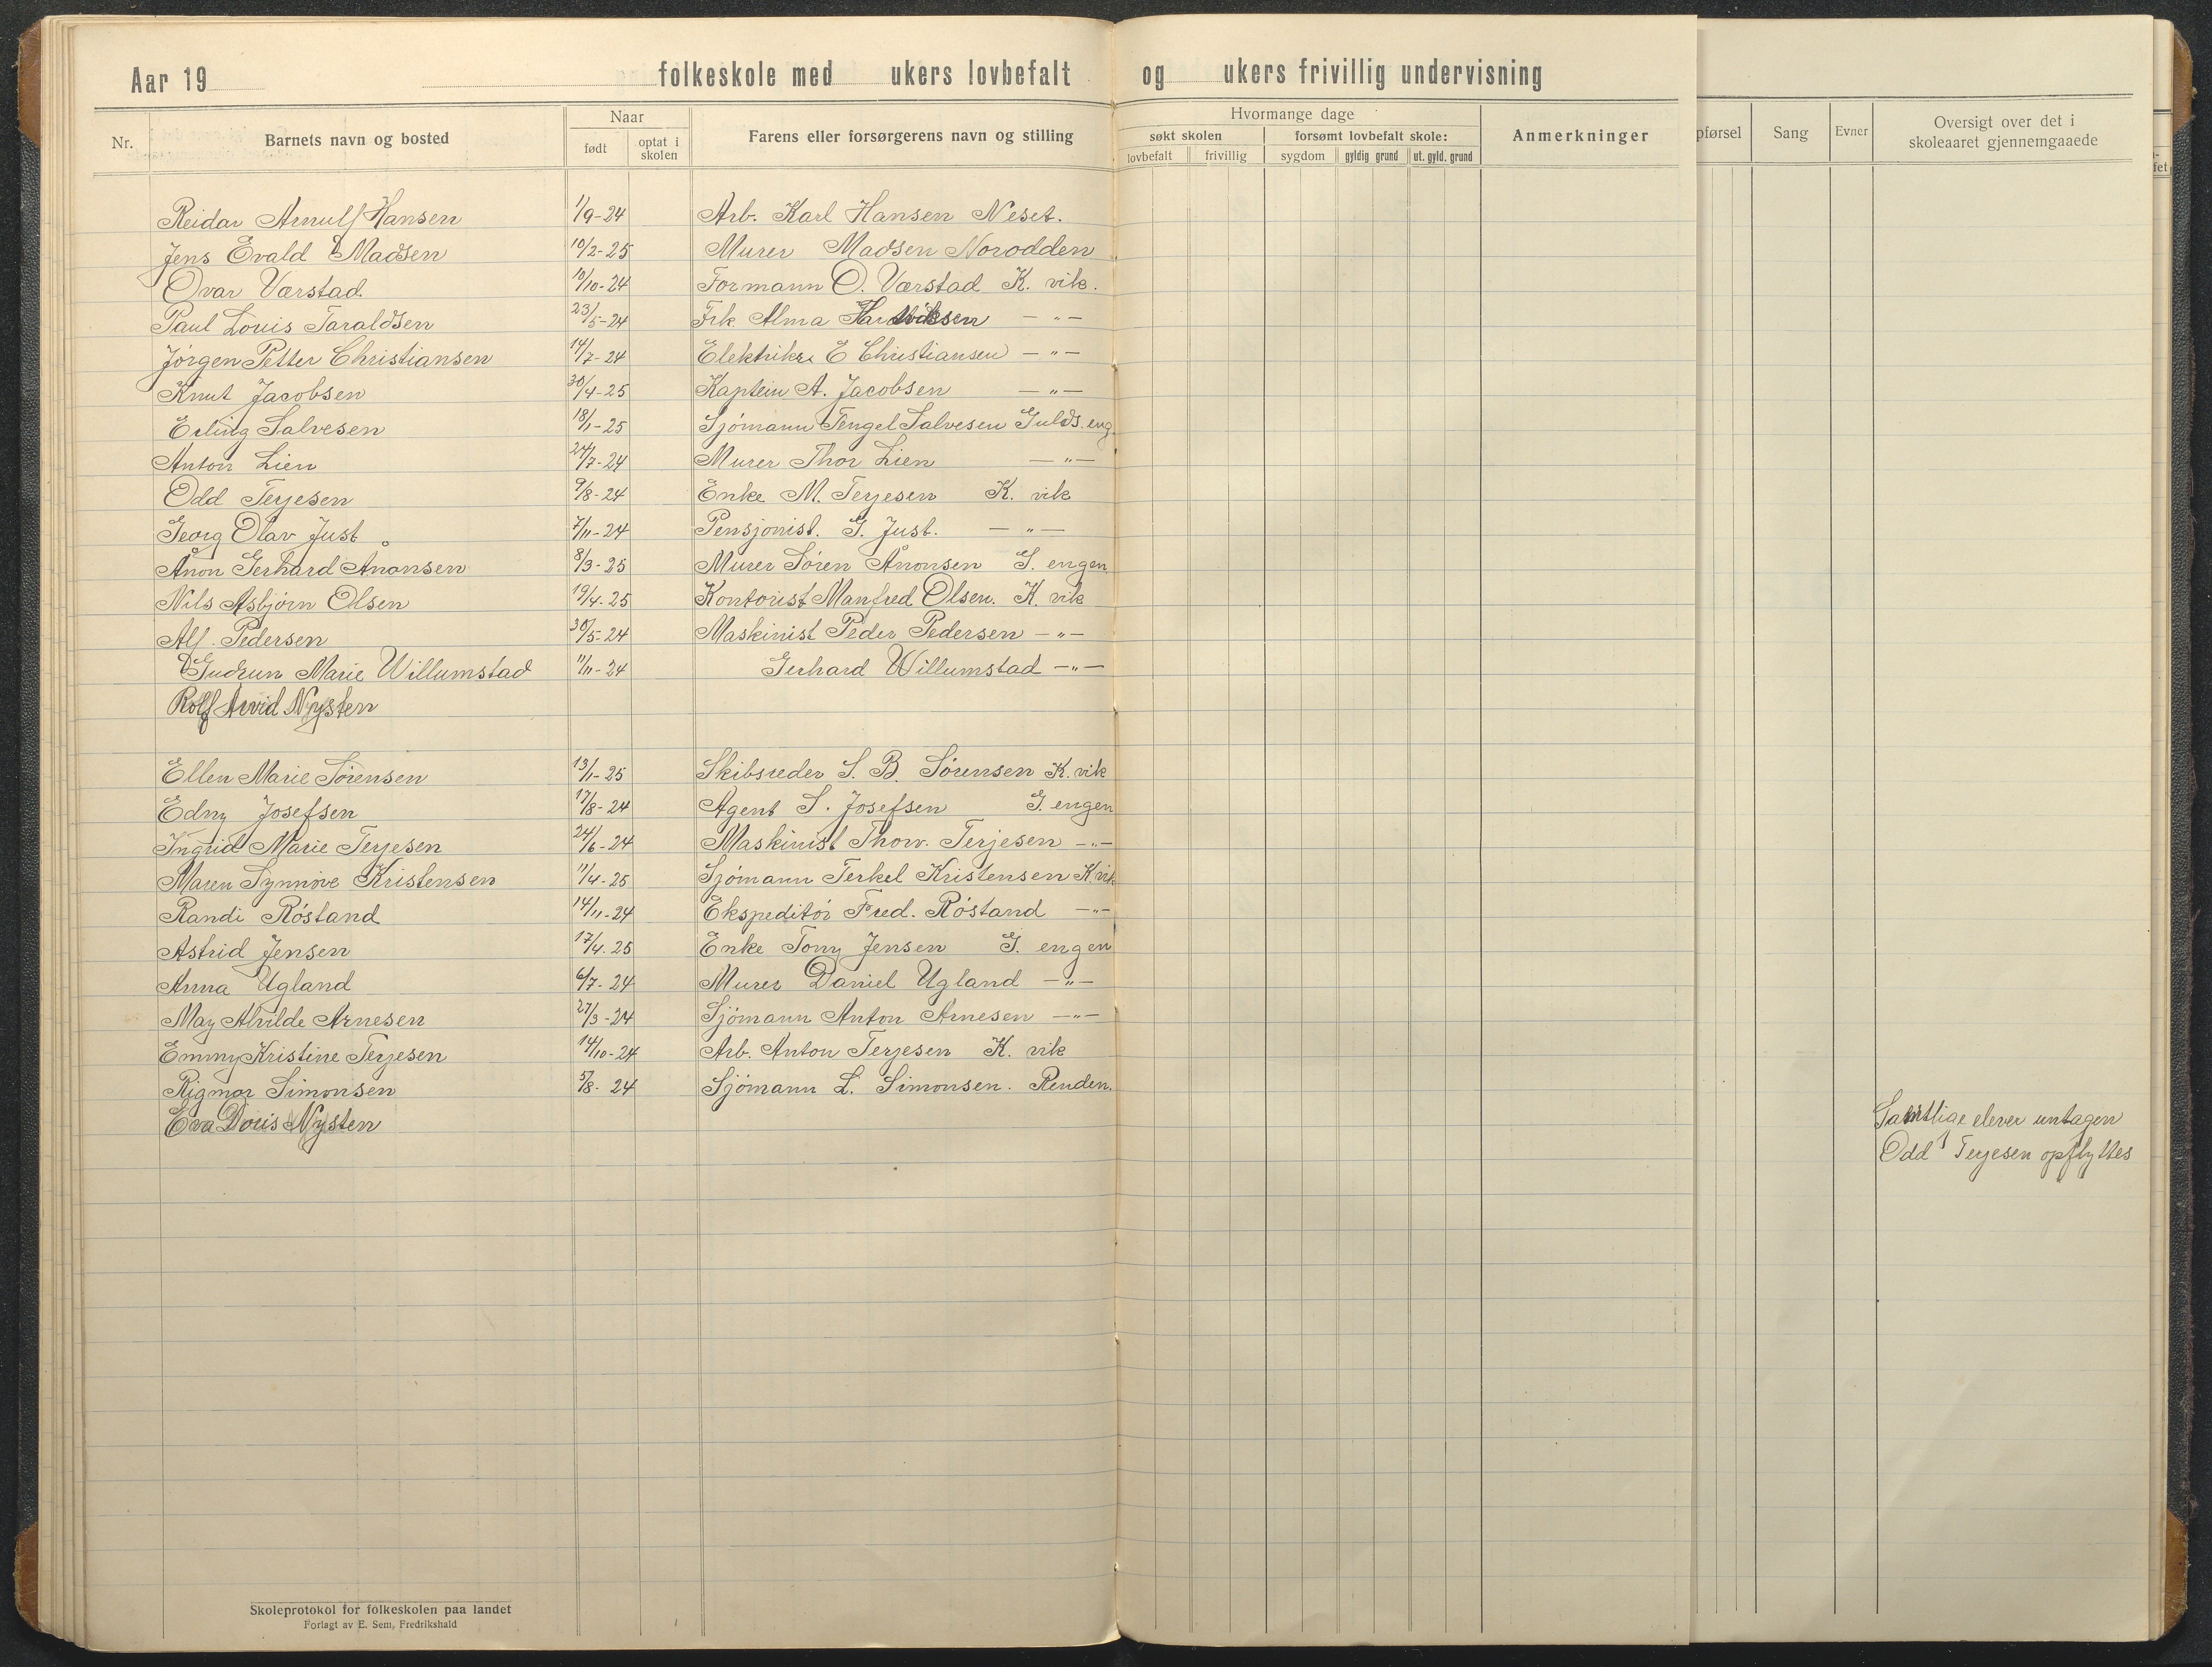 Aar 19 folkeskole med ukers lovbefalt og ukers frivillig undervisning
Nr. Barnets navn og bosted Naar født optat i skolen Farens eller forsørgerens navn og stilling Hvormange dage søkt skolen lovbefalt frivillig forsømt lovbefalt skole: sygdom gyldig grund ut. gyld. grund Anmerkninger pførsel Sang Evner Oversigt over det i skoleaaret gjennemgaaede
Reidar Arnulf Hansen 1/9-24 Arb. Karl Hansen Neset.
Jens Evald Madsen 10/2-25 Murer Madsen Norodden
Ovar Værstad 10/10-24 Formann O. Værstad K. vik.
Paul Louis Taraldsen 23/5-24 Frk Alma
Jörgen Petter Christiansen 14/7-24 Elektriker E Christiansen —"—
Knut Jacobsen 30/4-25 Kaptein A. Jacobsen —"—
Erling Salvesen 18/1-25 Sjömann Tengel Salvesen Gulds.eng.
Anton Lien 24/7-24 Murer Thor Lien —"—
Odd Terjesen 9/8-24 Enke M. Terjesen K. vik
Georg Olav Just 7/11-24 Pensjonist. G. Just. —"—
Ånon Gerhard Ånonsen 8/3-25 Murer Sören Ånonsen G. engen
Nils Asbjörn Olsen 19/4.25 Kontorist Manfred Olsen. K. vik
Alf. Pedersen 30/5-24 Maskinist Peder Pedersen —"—
Gudrun Marie Willumstad 11/11-24 Gerhard Willumstad —"—
Rolf Arvid Nysten
Ellen Marie Sörensen 13/1-25 Skibsreder S. B. Sörensen K. vik
Edny Josefsen 17/8-24 Agent S. Josefsen G. engen
Ingrid Marie Terjesen 24/6-24 Maskinist Thorv. Terjesen —"—
Maren Synnöve Kristensen 11/4-25 Sjömann Terkel Kristensen K. vik
Randi Röstand 14/11-24 Ekspeditör Fred. Röstand —"—
Astrid Jensen 17/4.25 Enke Tony Jensen G. engen
Anna Ugland 6/7-24 Murer Daniel Ugland —"—
May Alvilde Arnesen 27/3-24 Sjömann Anton Arnesen —"—
Emmy Kristine Terjesen 14/10-24 Arb. Anton Terjesen K. vik
Rigmor Simonsen 5/8-24 Sjömann L. Simonsen. Renden.
Eva Doris Nysten
Samtlige elever untagen
Odd Terjesen opflyttes
Skoleprotokol for folkeskolen paa landet
Forlagt av E. Sem, Fredrikshald